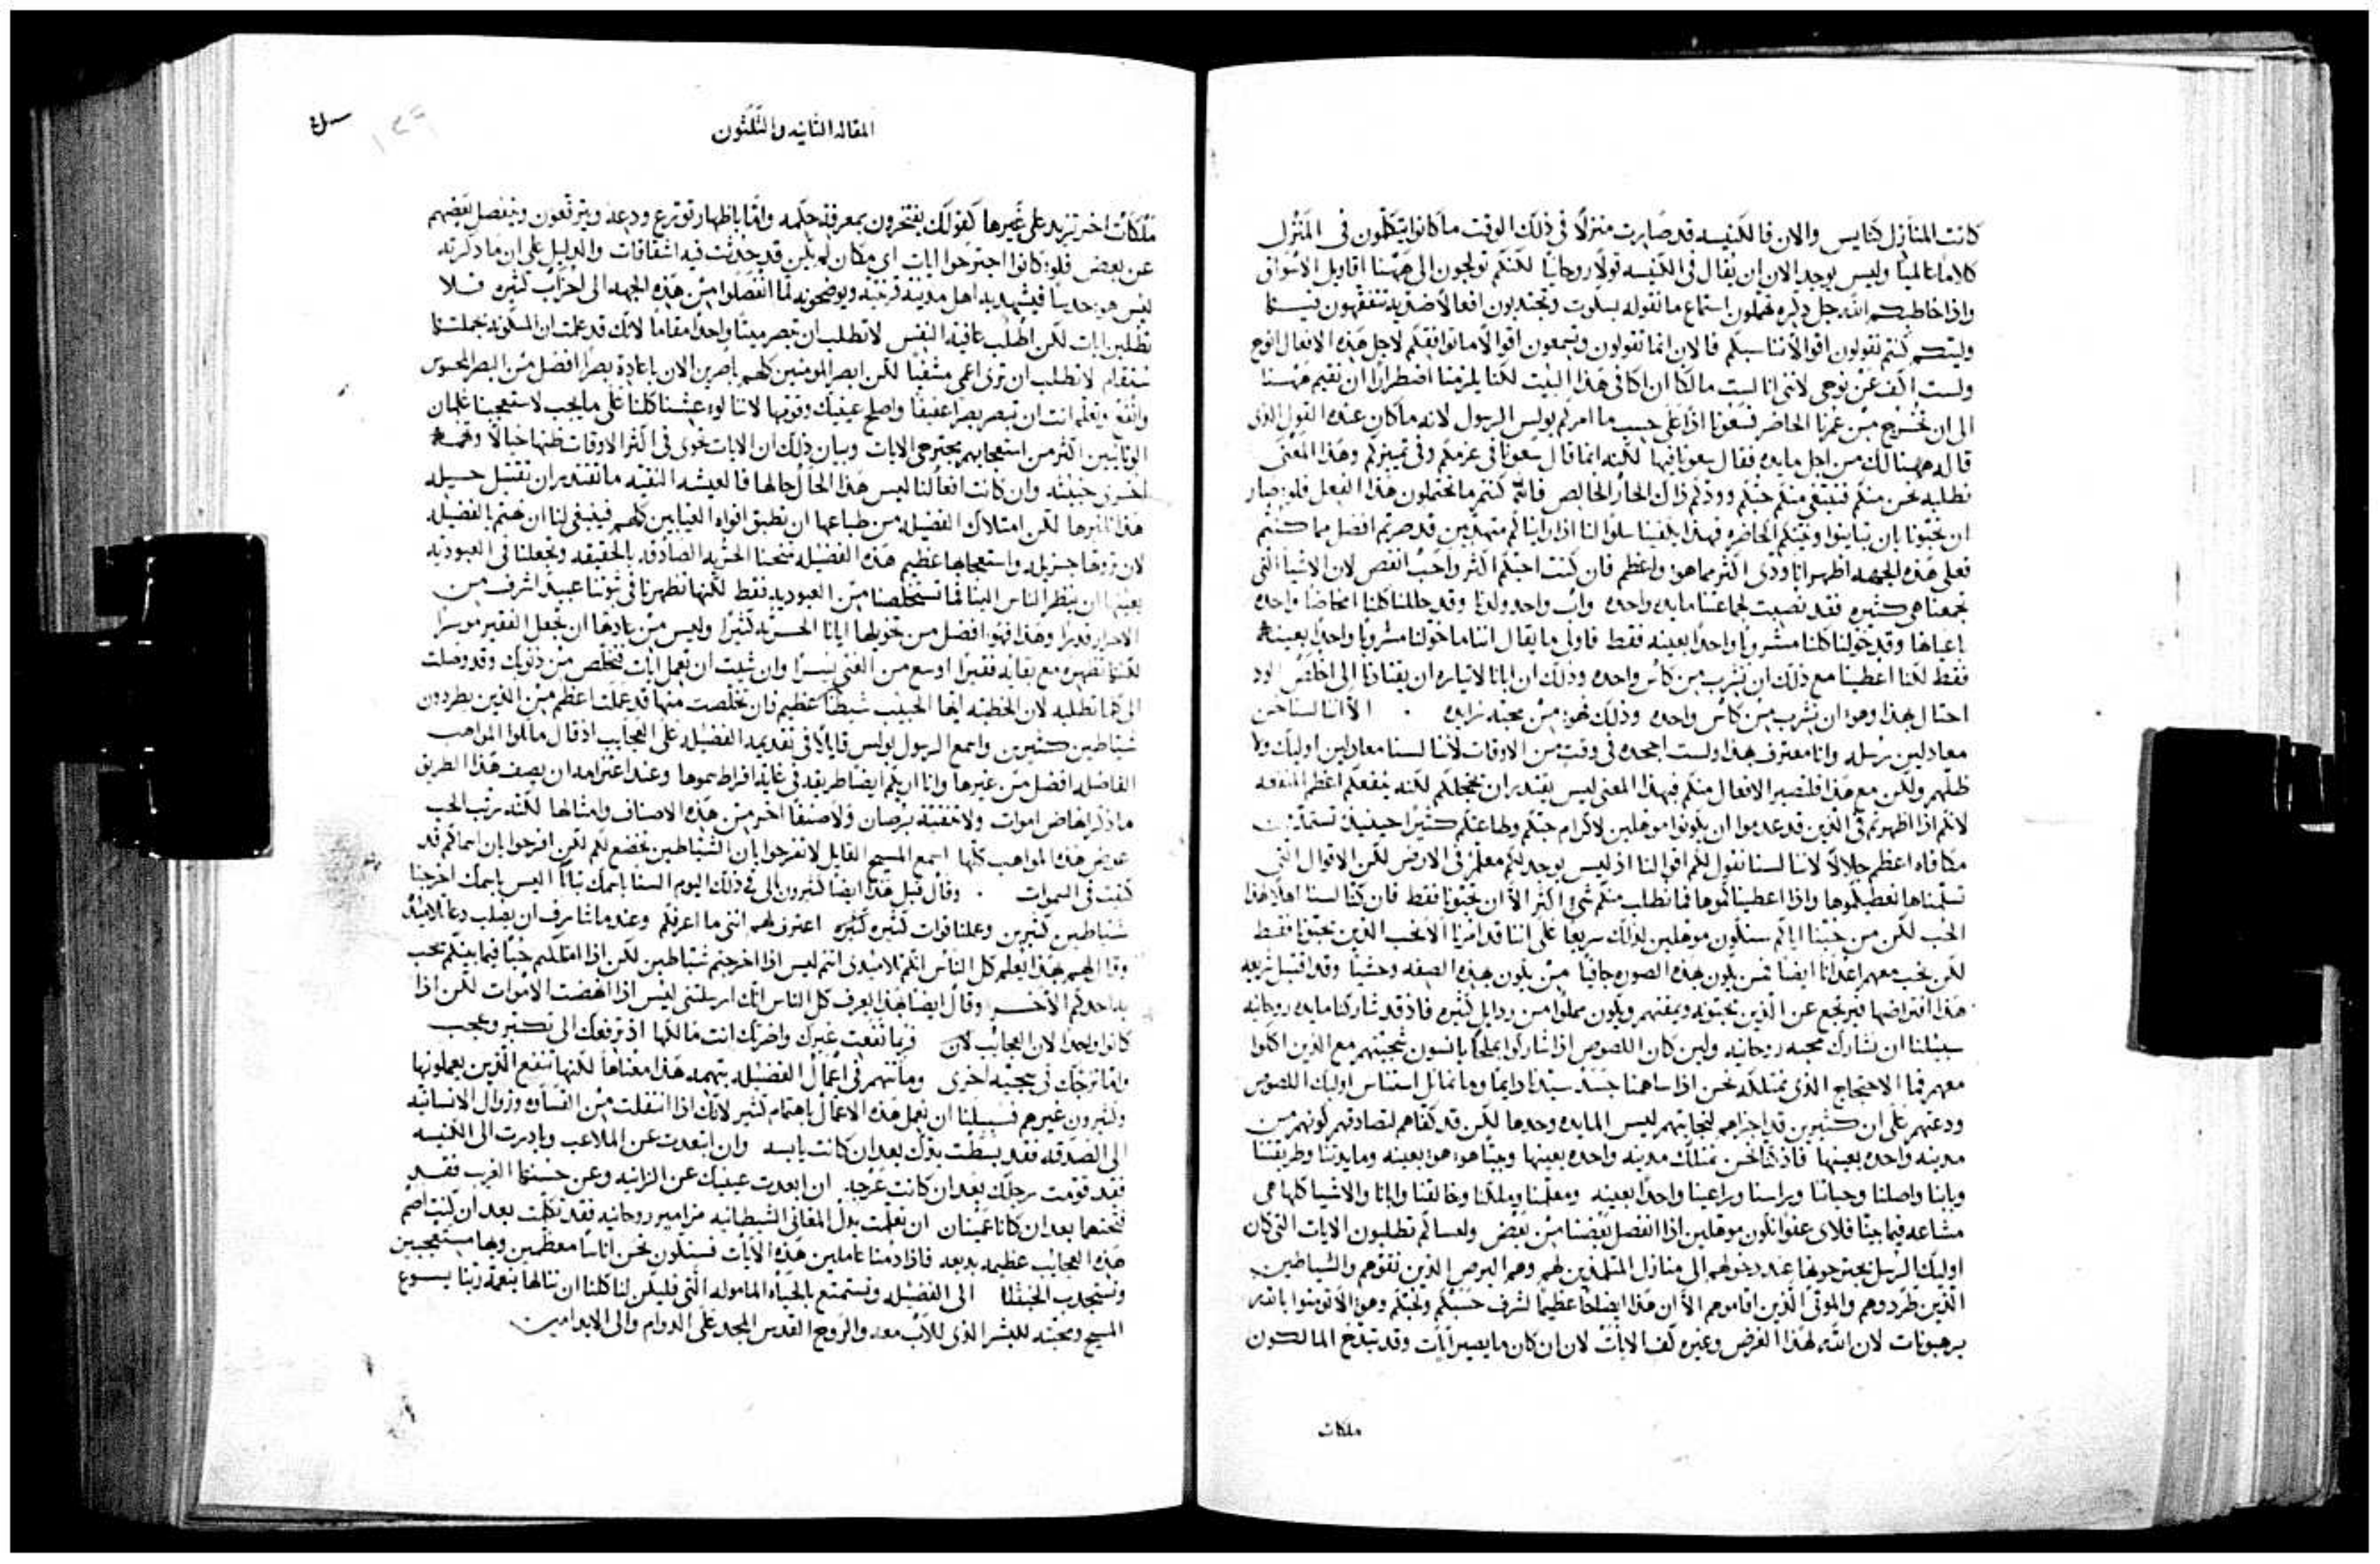 كانت المنازل كنايس والان فالكنيسه قد صارت منزلًا في ذلك الوقت ما كانوا يتكلمون في المنزل
كلامًا عالميًا وليس يوجد الان ان يقال في الكنيسه قولًا روحانيًا لكنكم تولجون الى ههنا اقاويل الاسواق
واذا خاطبكم الله جل ذكره تهملون استماع ما نقوله بسكوت وتجتدبون افعالًا ضديه تتفقهون فيها
وليتكم كنتم تقولون اقوالًا تناسبكم فالان انما تقولون وتسمعون اقوالًا ما توافقكم لاجل هذه الافعال انوح
ولست اكف عن نوحي لانني انا لست مالكًا ان اكافي هذا البيت لكنا يلزمنا اضطرارًا ان نقيم ههنا
الى ان نخرج من عمرنا الحاضر فسعونا اذًا على حسب ما امركم بولس الرسول لانه ما كان عنده القول الذي
قاله ههنالك من اجل مايده فقال سعونا فيها لكنه انما قال سعونا في عزمكم وفي تمييزكم وهذا المعنى
نطلبه نحن منكم فنبتغي منكم حبكم وودكم ذاك الحار الخالص فان كنتم ما تحتملون هذا الفعل فلو صار
ان تحبونا بان تباينوا ونيتكم الحاضره فهذا يكفينا سلوا لنا اذا رايناكم متهذبين قد صرتم افضل مما كنتم
فعلى هذه الجهه اظهر انا ودي اكثر مما هو واعظم فان كنت احبكم اكثر واحب انقص لان الاشيا التي
تجمعنا هي كثيره فقد نصبت لجماعتنا مايده واحده واب واحد ولدنا وقد حللنا كلنا امخاضًا واحده
باعيانها وقد خولنا كلنا مشروبًا واحدًا بعينه فقط فاولى ما يقال اننا ما خولنا مشروبًا واحدًا بعينه
فقط لكنا اعطينا مع ذلك ان نشرب من كاس واحده وذلك ان ابانا لايثاره ان يقتادنا الى اخلص الود
احتال بهذا وهو ان نشرب من كاس واحده وذلك فهو من محبه زايده . الا اننا لسنا نحن
معادلين رسله وانا معترف بهذا ولست اجحده في وقت من الاوقات لاننا لسنا معادلين اوليك ولا
ظلهم ولكن مع هذا فلتصير الافعال منكم فهذا المعنى ليس يقتدر ان يخجلكم لكنه ينفعكم اعظم المنفعه
لانكم اذا اظهرتم في الذين قد عدموا ان يكونوا موهلين لاكرام حبكم وطاعتكم كثيرًا حينيذ تستمدون
مكافاه اعظم جلالًا لاننا لسنا نقول لكم اقوالنا اذ ليس يوجد لكم معلم في الارض لكن الاقوال التي
تسلمناها نعطيكموها واذا اعطيناكموها فما نطلب منكم شي اكثر الا ان تحبونا فقط فان كنا لسنا اهلًا لهذا
الحب لكن من حبنا اياكم سنكون موهلين لذلك سريعًا على اننا قد امرنا الا نحب الذين يحبونا فقط
لكن نحب معهم اعدانا ايضًا فمن يكون بهذه الصوره جافيًا من يكون بهذه الصفه وحشيًا وقد اقتبل شريعه
هذا افتراضها فيرتجع عن الذين يحبونه ويمقتهم ويكون مملوًا من رذايل كثيره فاذ قد شاركنا مايده روحانيه
سبيلنا ان نشارك محبه روحانيه ولين كان اللصوص اذا شاركوا بملح يانسون بمحبتهم مع الذين اكلوا
معهم فما الاحتجاج الذي نمتلكه نحن اذا ساهمنا جسد سيدنا دايمًا وما نماثل استناس اوليك اللصوص
ودعتهم على ان كثيرين قد اجتراهم لنجاتهم ليس المايده وحدها لكن قد كفاهم لتصادقهم كونهم من
مدينه واحده بعينها فاذ كنا نحن نمتلك مدينه واحده بعينها وبيتًا هو هو بعينه ومايدتنا وطريقتنا
وبابنا واصلنا وحياتنا وراسنا وراعينا واحدًا بعينه ومعلمنا وملكنا وخالقنا وابانا والاشيا كلها هي
مشاعه فيما بيننا فلاي عفو انكون موهلين اذا انفصل بعضنا من بعض ولعساكم تطلبون الايات التي كان
اوليك الرسل يجترحونها عند دخولهم الى منازل المتلمذين لهم وهم البرص الذين نقوهم والشياطين
الذين طردوهم والموتى الذين اقاموهم الا ان هذا ايضاحًا عظيمًا لشرف حسبكم ولحبكم وهو الا تومنوا بالله
برهونات لان الله لهذا الغرض وغيره كف الايات لان ان كان ما يصير ايات وقد تبذخ المالكون
ملكات
المقاله الثانيه والثلثون
ملكات اخر تزيد على غيرها كقولك يفتخرون بمعرفة حكمه واما باظهار تورع ودعه ويترفعون وينفصل بعضهم
عن بعض فلو كانوا اجترحوا ايات اي مكان لم يكن قد حدثت فيه انشقاقات والدليل على ان ما ذكرته
ليس هو حدسًا فيشهد به اهل مدينة قرنتيه ويوضحونه لما انفصلوا من هذه الجهه الى احزاب كثيره فلا
تطلبن ايات لكن اطلب عافية النفس لا تطلب ان تبصر ميتًا واحدًا مقامًا لانك قد علمت ان المسكونه بجملتها
ستقام لا تطلب ان ترى اعمى مشفيًا لكن ابصر المومنين كلهم باصرين الان باعادة بصرًا افضل من البصر المحسوس
وانفع وتعلم انت ان تبصر بصرًا عفيفًا واصلح عينيك وقومها لاننا لو عشنا كلنا على ما يجب لاستعجبنا غلمان
الوثانيين اكثر من استعجابهم بمجترحي الايات وبيان ذلك ان الايات تحوي في اكثر الاوقات ظنها خيالًا وتهمه
اخرى خبيثه وان كانت افعالنا ليس هذا الحال حالها فالعيشه النقيه ما تقتدر ان تقتبل حسيله
هذا تاثيرها لكن امتلاك الفضيله من طباعها ان تطبق افواه العيابين كلهم فينبغي لنا ان نهتم بالفضيله
لان ثروتها جزيله واستعجابها عظيم هذه الفضيله تمنحنا الحريه الصادقه بالحقيقه وتجعلنا في العبوديه
بعينها ان ينظر الناس الينا لما تستخلصنا من العبوديه فقط لكنها تظهرنا في ثوبنا عبيدًا اشرف من
الاحرار قدرًا وهذا فهو افضل من تخويلها ايانا الحريه كثيرًا وليس من عادتها ان تجعل الفقير موسرًا
لكنها تظهره مع بقايه فقيرًا اوسع من الغني يسرًا وان شيت ان تعمل ايات فتخلص من ذنوبك وقد وصلت
الى كلما تطلبه لان الخطيه ايها الحبيب شيطانًا عظيم فان تخلصت منها قد عملت اعظم من الذين يطردون
شياطين كثيرين واسمع الرسول بولس قايلًا في تقديمه الفضيله على العجايب اذ قال ماثلوا المواهب
الفاضله افضل من غيرها وانا اريكم ايضًا طريقه في غاية افراط سموها وعند اعتزامه ان يصف هذا الطريق
ما ذكر انهاض اموات ولا تنقية برصان ولا صنفًا اخر من هذه الاصناف وامثالها لكنه رتب الحب
عوض هذه المواهب كلها اسمع المسيح القايل لا تفرحوا بان الشياطين تخضع لكم لكن افرحوا بان اسماكم قد
كتبت في السموات . وقال قبل هذا ايضًا كثيرون لي في ذلك اليوم السنا باسمك تنبانا اليس باسمك اخرجنا
شياطين كثيرين وعملنا قوات كثيره كثيره اعترف لهم انني ما اعرفكم وعندما شارف ان يصلب دعا تلاميذه
وقال لهم بهذا يعلم كل الناس انكم تلاميذي انتم ليس اذا اخرجتم شياطين لكن اذا امتلكتم حبًا فيما بينكم يحب
به احدكم الاخر وقال ايضًا بهذا يعرف كل الناس انك ارسلتني ليس اذا انهضت الاموات لكن اذا
كانوا واحدًا لان العجايب لان ربما نفعت غيرك واضرتك انت مالكها اذ ترفعك الى تكبر وعجب
واما تزخك في سجيه اخرى وما تتهم في اعمال الفضيله بتهمه هذا معناها لكنها تنفع الذين يعملونها
وكثيرون غيرهم فسبيلنا ان نعمل هذه الاعمال باهتمام كثير لانك اذا انتقلت من القساوه وزوال الانسانيه
الى الصدقه فقد بسطت يدك بعد ان كانت يابسه وان ابتعدت عن الملاعب وبادرت الى الكنيسه
فقد قومت رجلك بعد ان كانت عرجه ان ابعدت عينيك عن الزانيه وعن حسنها الغريب فقد
فتحتهما بعد ان كانتا عميتان ان تعلمت بدل المغاني الشيطانيه مزامير روحانيه فقد تكلمت بعد ان كنت اصم
هذه العجايب عظيمه بديعه فاذا دمنا عاملين هذه الايات فسنكون نحن اناسًا معظمين وبها مستعجبين
ونستجدب الخبثا الى الفضيله ونستمتع بالحياه الماموله التي فليكن لنا كلنا ان ننالها بنعمة ربنا يسوع
المسيح ومحبته للبشر الذي للاب معه والروح القدس المجد على الدوام والى الابد امين